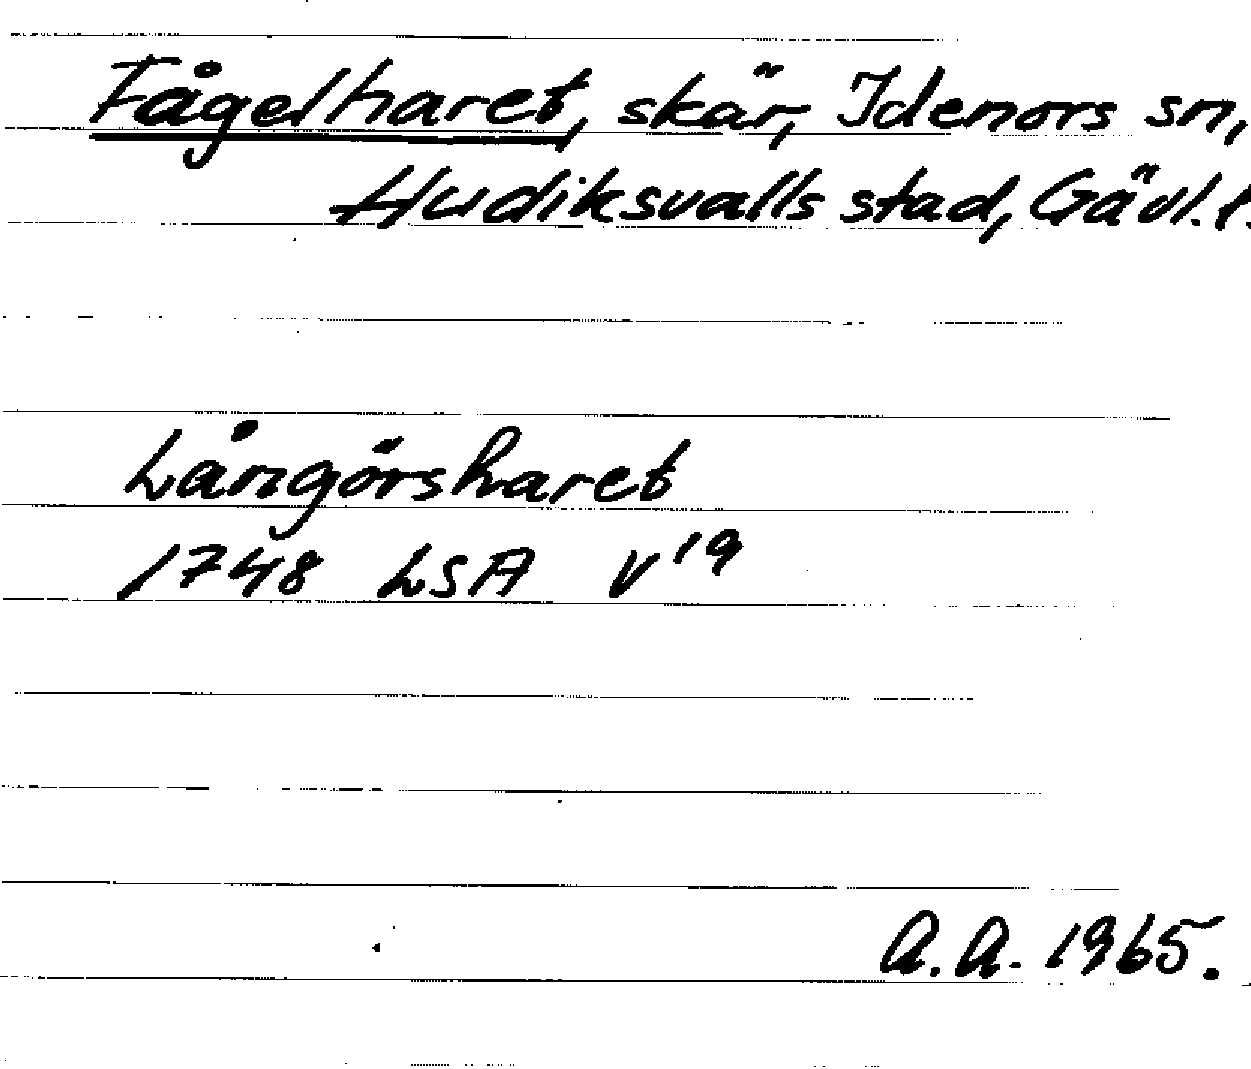 Fågelharet, skär, Idenors sn,
Hudiksvalls stad, Gävl. l.
Långörsharet
1748 LSA V¹⁹
A.A. 1965.